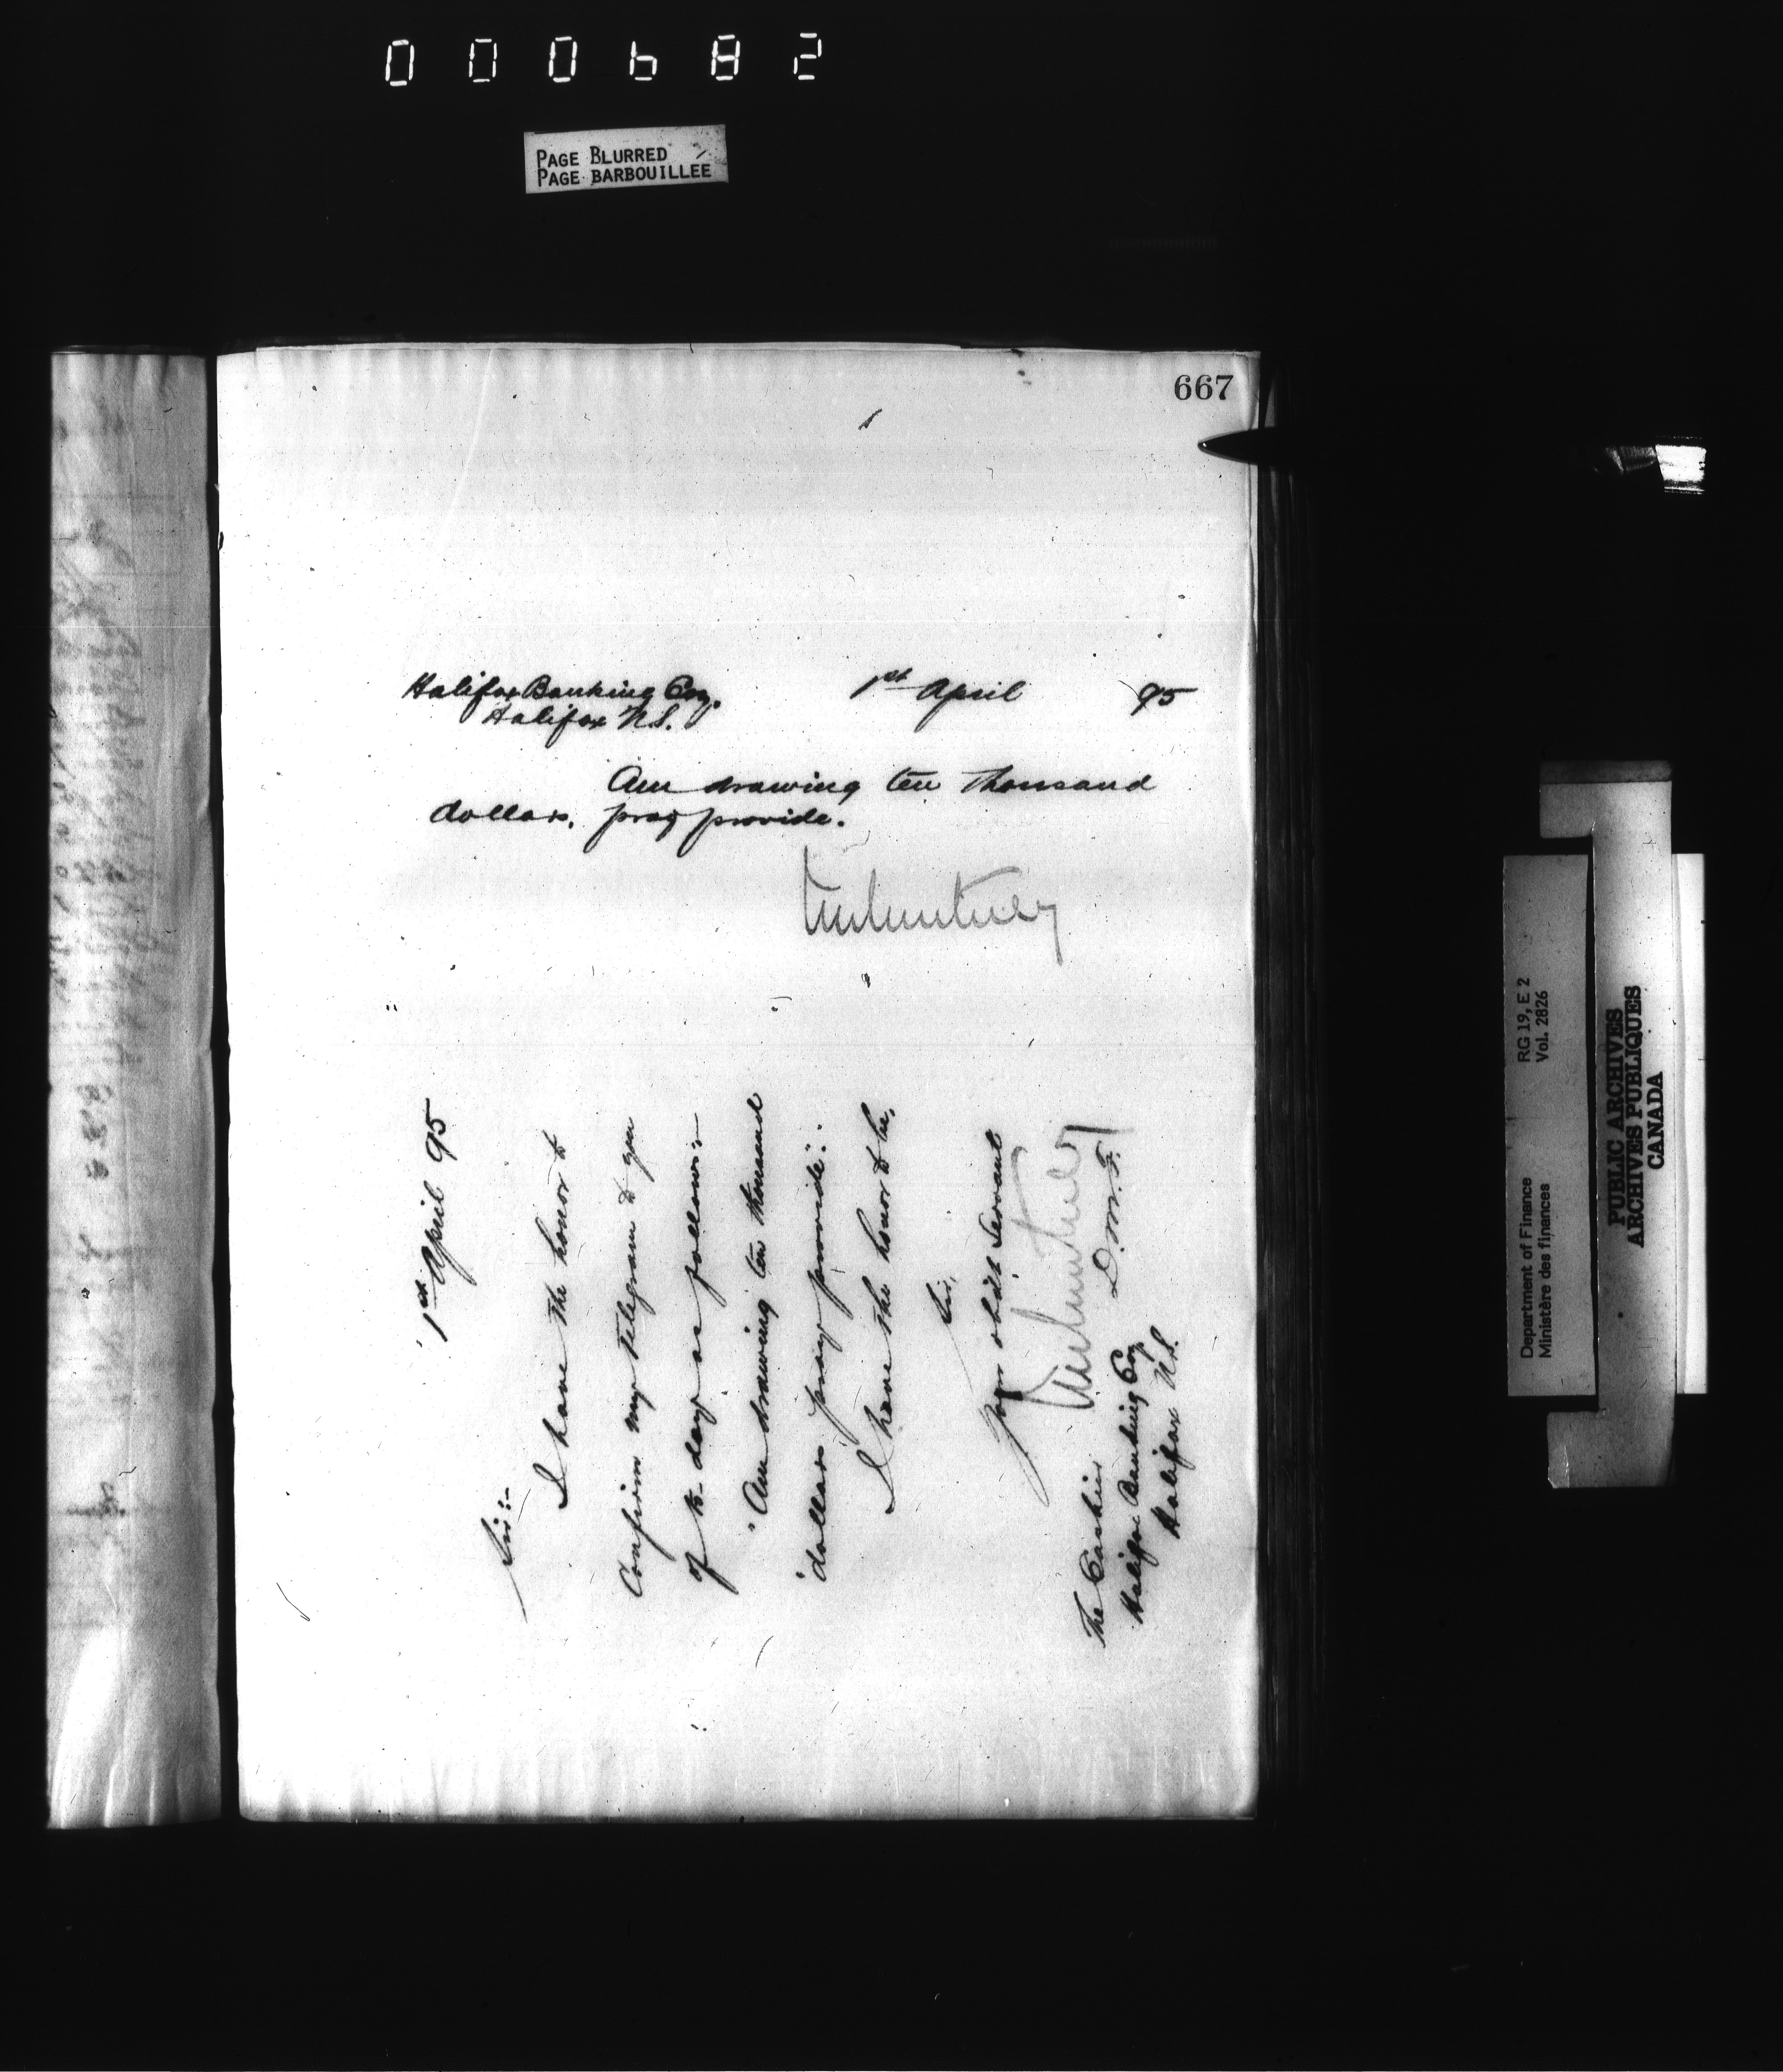 000682
PAGE BLURRED
PAGE BARBOUILLEE
667
Halifax Banking Coy. 1st April 95
Halifax N.S.
Am drawing ten thousand
dollars. pray provide.
1st April 95
Sir:-
I have the honor to
Confirm my telegram to you
of to-day as follows:-
"Am drawing ten thousand
"dollars pray provide".
I have the honor to be,
Sir,
Your obdt Servant
D.M.F.
The Cashier
Halifax Banking Coy
Halifax N.S.
Department of Finance RG 19, E 2
Ministère des finances Vol. 2826
PUBLIC ARCHIVES
ARCHIVES PUBLIQUES
CANADA